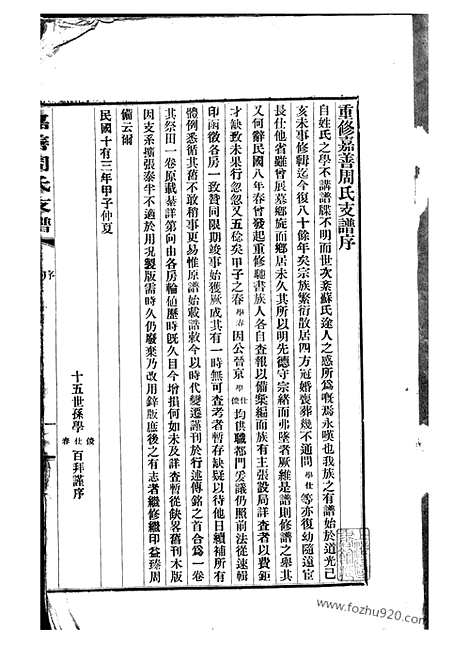 重修嘉善周氏支譜序
自姓氏之學不講譜牒不明而世次紊蘇氏途人之惑所為嘅焉永嘆也我族之有譜始於道光己
亥未事修輯迄今復八十餘年矣宗族繁衍散居四方冠婚喪葬幾不通問學仕等亦復幼隨遠宦
長仕他省雖曾展墓鄉旋而鄉居未久其所以明先德守宗緒而弗墜者厥維是譜則修譜之舉其
又何辭民國八年春曾發起重修馳書族人各自查報以備彙編而族有主張設局詳查者以費鉅
才缺致未果行忽忽又五稔矣甲子之春學春因公晉京學仕俊均供職都門爰議仍照前法從速輯
印函徵各房一致贊同限期竣事始獲厥成其有一時無可查考者暫存缺疑以待他日續補所有
體例悉循其舊不敢稍事更易惟原譜始載誥敕今以時代變遷謹刊於行述傳銘之首合為一卷
其祭田一卷原載綦詳第向由各房輪值歷時既久目今增損何如未及詳查暫從飲畧舊刊木版
因支系擴張泰半不適於用現製版需時久仍廢棄乃改用鋅版庶後之有志者繼修繼印益臻周
備云爾
民國十有三年甲子仲夏
十五世孫學俊仕春百拜謹序
嘉善周氏支譜
序
www.fozhu920.com